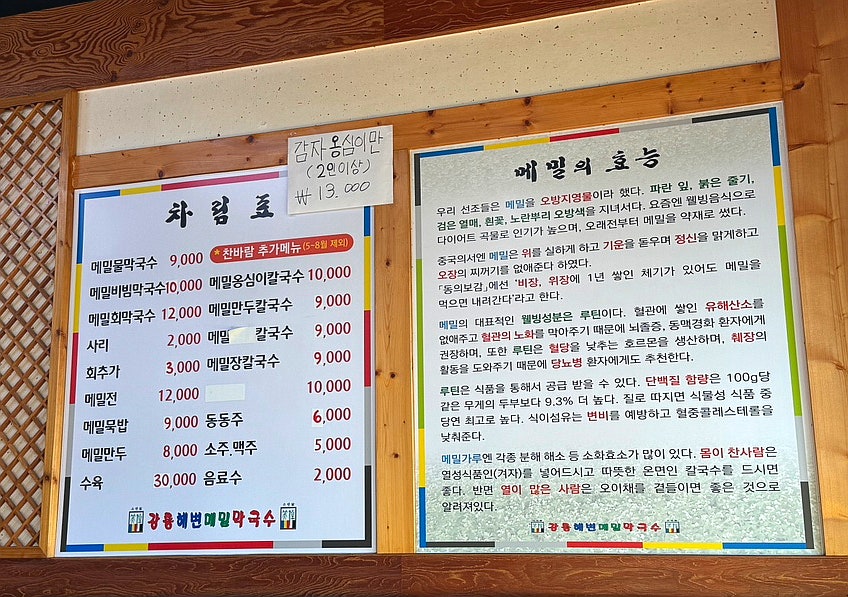 감자 옹심이만
(2인이상)
₩ 13.000
차림표
메밀물막국수 9,000
메밀비빔막국수 10,000
메밀회막국수 12,000
사리 2,000
회추가 3,000
메밀전 12,000
메밀묵밥 9,000
메밀만두 8,000
수육 30,000
★찬바람 추가메뉴(5~8월 제외)
메밀옹심이칼국수 10,000
메밀만두칼국수 9,000
메밀 칼국수 9,000
메밀장칼국수 9,000
10,000
동동주 6,000
소주.맥주 5,000
음료수 2,000
강릉해변메밀막국수
메밀의 효능
우리 선조들은 메밀을 오방지영물이라 했다. 파란 잎, 붉은 줄기,
검은 열매, 흰꽃, 노란뿌리 오방색을 지녀서다. 요즘엔 웰빙음식으로
다이어트 곡물로 인기가 높으며, 오래전부터 메밀을 약재로 썼다.
중국의서엔 메밀은 위를 실하게 하고 기운을 돋우며 정신을 맑게하고
오장의 찌꺼기를 없애준다 하였다.
「동의보감」에선 '비장, 위장에 1년 쌓인 체기가 있어도 메밀을
먹으면 내려간다'라고 한다.
메밀의 대표적인 웰빙성분은 루틴이다. 혈관에 쌓인 유해산소를
없애주고 혈관의 노화를 막아주기 때문에 뇌졸증, 동맥경화 환자에게
권장하며, 또한 루틴은 혈당을 낮추는 호르몬을 생산하며, 췌장의
활동을 도와주기 때문에 당뇨병 환자에게도 추천한다.
루틴은 식품을 통해서 공급 받을 수 있다. 단백질 함량은 100g당
같은 무게의 두부보다 9.3% 더 높다. 질로 따지면 식물성 식품 중
당연 최고로 높다. 식이섬유는 변비를 예방하고 혈중콜레스테롤을
낮춰준다.
메밀가루엔 각종 분해 해소 등 소화효소가 많이 있다. 몸이 찬사람은
열성식품인(겨자)를 넣어드시고 따뜻한 온면인 칼국수를 드시면
좋다. 반면 열이 많은 사람은 오이채를 곁들이면 좋은 것으로
알려져있다.
강릉해변메밀막국수